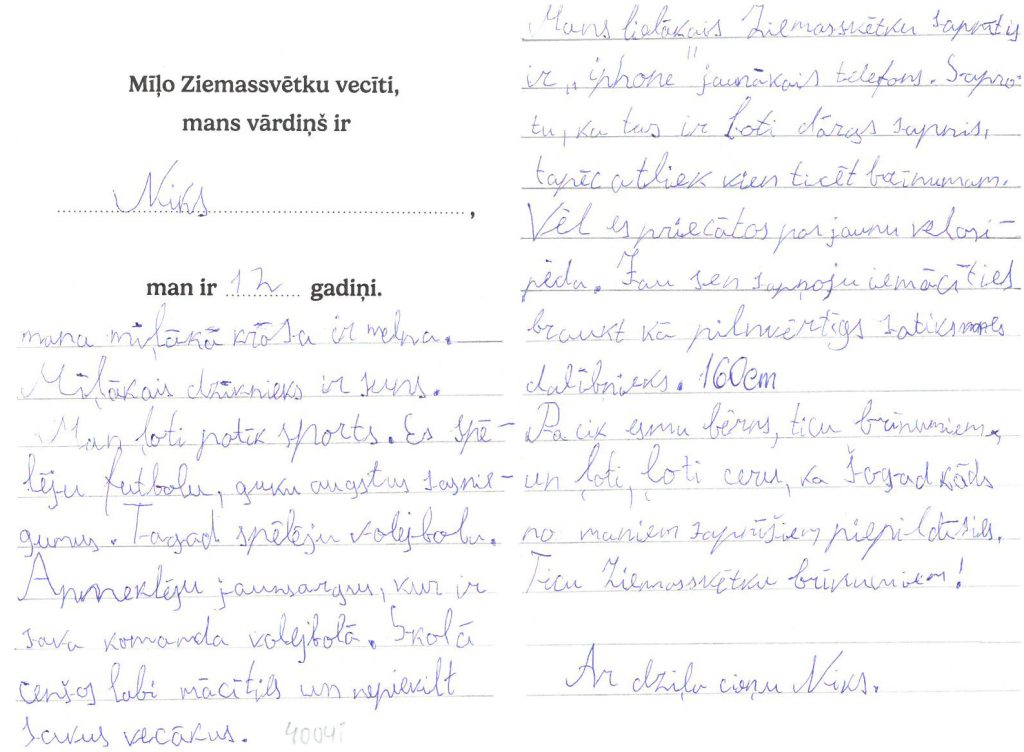 Mīļo Ziemassvētku vecīti,
mans vārdiņš ir
Niks,
man ir 12 gadiņi.
mana mīļākā krāsa ir melna.
Mīļākais dzīvnieks ir suns.
Man ļoti patīk sports. Es spē-
lēju futbolu, guku augstus sasnie-
gumus. Tagad spēlēju volejbolu.
Apmeklēju jaunsargus, kur ir
sava komanda volejbolā. Skolā
cenšos labi mācīties un nepievilt
savus vecākus. 4004i
Mans lielākais Ziemassvētku sapnītis
ir „iphone" jaunākais telefons. Sapro-
tu, ka tas ir ļoti dārgs sapnis,
tapēc atliek vien ticēt brīnumam.
Vēl es priecātos par jaunu velosi-
pēdu. Jau sen sapņoju iemācīties
braukt kā pilnvērtīgs satiksmes
dalībnieks. 160cm
Pa cik esmu bērns, ticu brīnumiem,
un ļoti, ļoti ceru, ka šogad kāds
no maniem sapnīšiem piepildīsies.
Ticu Ziemassvētku brīnumiem!
Ar dziļu cieņu Niks.